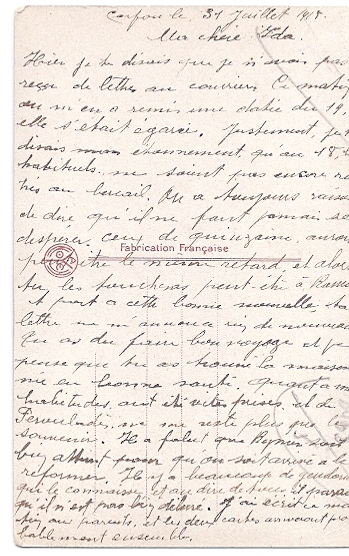 Corfou le 31 Juillet 1918.
Ma chère Ida
Hier je te disais que je n'avais pas
reçu de lettres au courrier. Ce matin
on m'en a remis une datée du 19,
elle s'était égarée. Justement, je te
disais mon étonnement, qu'au 18,
habituels ne soient pas encore
au bercail. On a toujours raison
de dire qu'il ne faut jamais
desperer ceux de quinzaine, auront
Fabrication Française
être le même retard, et alors
tu, les toucheras peut être à
A part à cette bonne nouvelle, ta
lettre ne m'annonce rien de nouveau
Tu as du faire bon voyage et je
pense que tu as trouvé la maison
en bonne santé. Quant à
habitudes, ont été vites prises, et de
ne me reste plus que le
souvenir. Il a fallut que soit
bien pour qu'on soit arrivé à le
reformer. Il y a beaucoup de
qui le connaissent et au dire de tous il parait
qu'il n'est pas bien. J'ai écrit ce
aux parents, et les deux cartes arriveront pro
bablement ensemble.